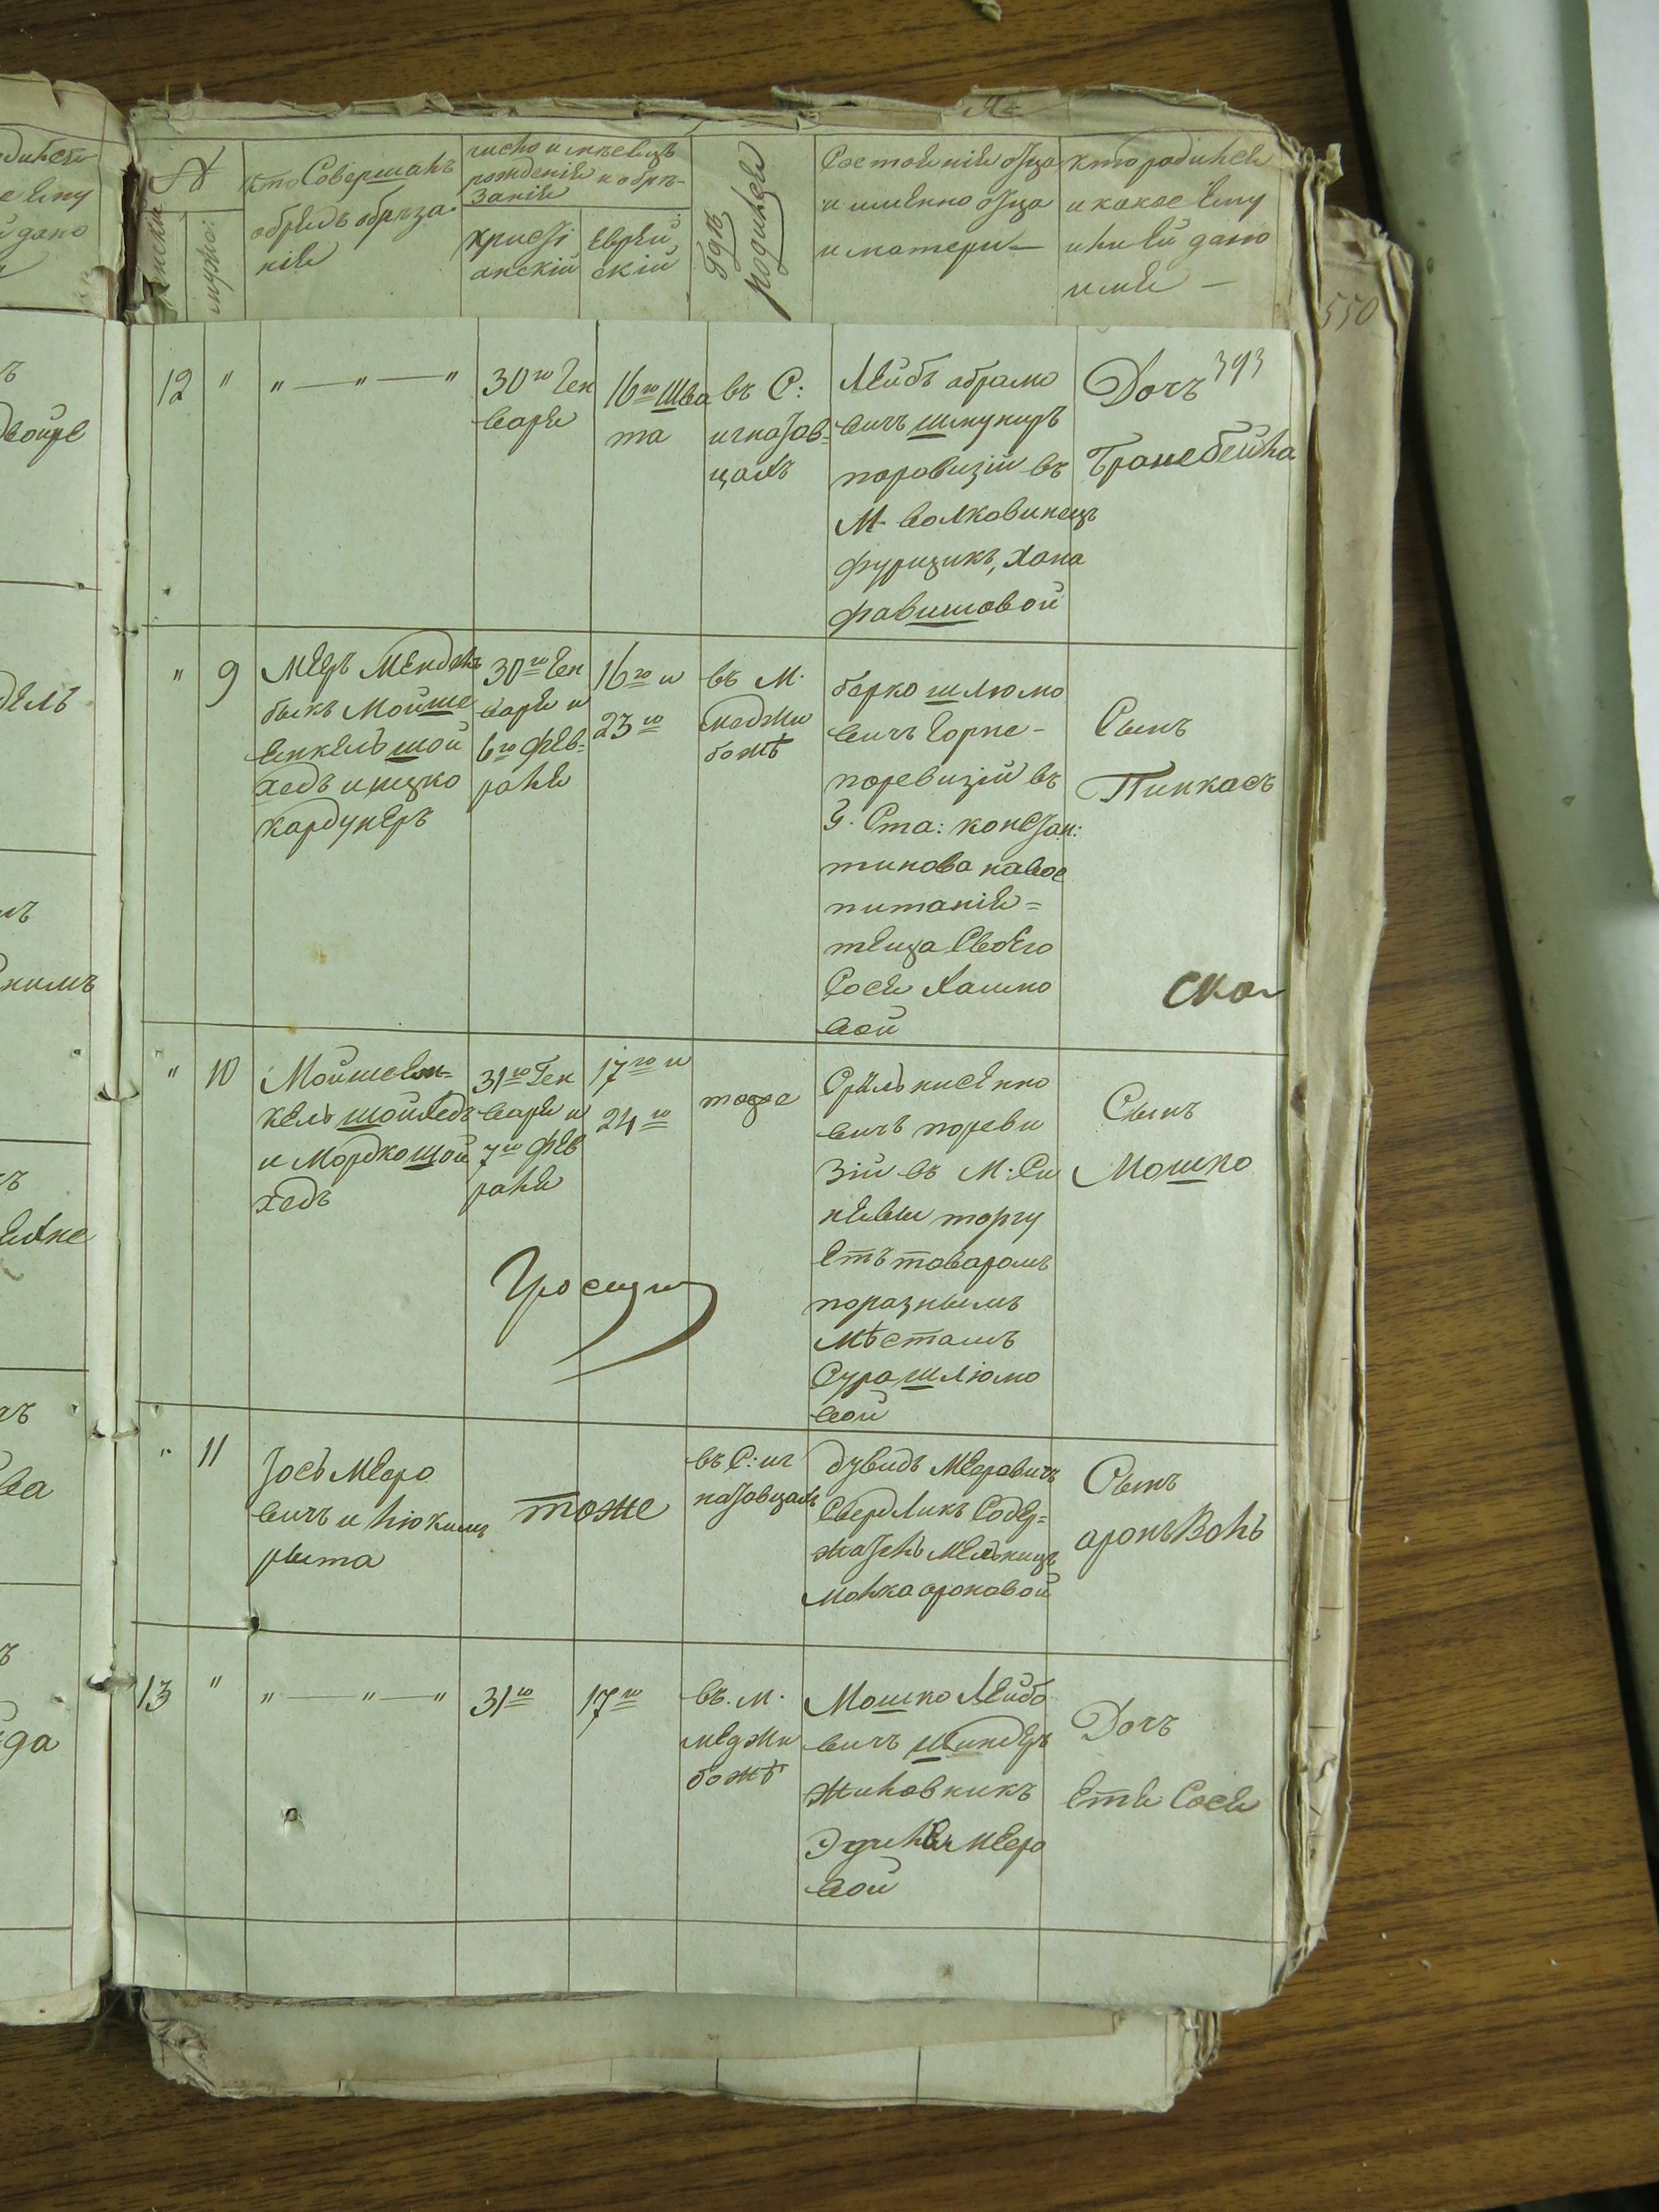 №
женски
мужс:
кто Совершалъ
обрядъ обреза-
нія
число и месецъ
рожденія и обре-
занія
христі
анскій
Еврей,
скій
где
родился
Состояніе отца
и имянно отца
и матери —
кто родился
и какое Ему
или Ей дано
имя —
550
393
12 " " — " — "
30го Ген
варя
16го Шва
та
въ С:
игнатов-
цахъ
Лейбъ абрамо
вичъ
поревизіи въ
М. Волковинецъ
фурщикъ, Хана
фавишовой
Дочъ
Бранебейла
" 9
Мееръ Мендель
быкъ Мойше
Енкель шой
хедъ и ицко
Кардунеръ
30го Ген
варя и
6го Фев-
раля
16го и
23го
въ М.
Меджи
божѣ
берко шлюмо
вичъ Горне-
поревизіи въ
Г. Ста: констан:
тинова навос
питаніи-
теща Своего
Сося Хаимо
вой
Сынъ
Пинкасъ
" 10
МойшеЕн-
кель шойхедъ
и Мордко шой
хедъ
31го Ген
варя и
7го Фев
раля
17го и
24го
тоже
Срúль нисенно
вичъ пореви
зіи въ М. Си
нявы торгу
Етъ товаромъ
поразнымъ
местамъ
Сура шлюмо
вой
Сынъ
Мошко
" 11
Іось Меро
вичъ и
рыта
тоже
въ С: иг
натовцахъ
дувидъ Меровичъ
Свердликъ Содер-
жатель Мельницъ
Малка ароновой
Сынъ
аронъ Волъ
13 " " — " — "
31го
17го
въ. М.
меджи
божѣ
Мошко Лейбо
вичъ шиндеръ
Эдиля Меро
вой
Дочъ
Етя Сося